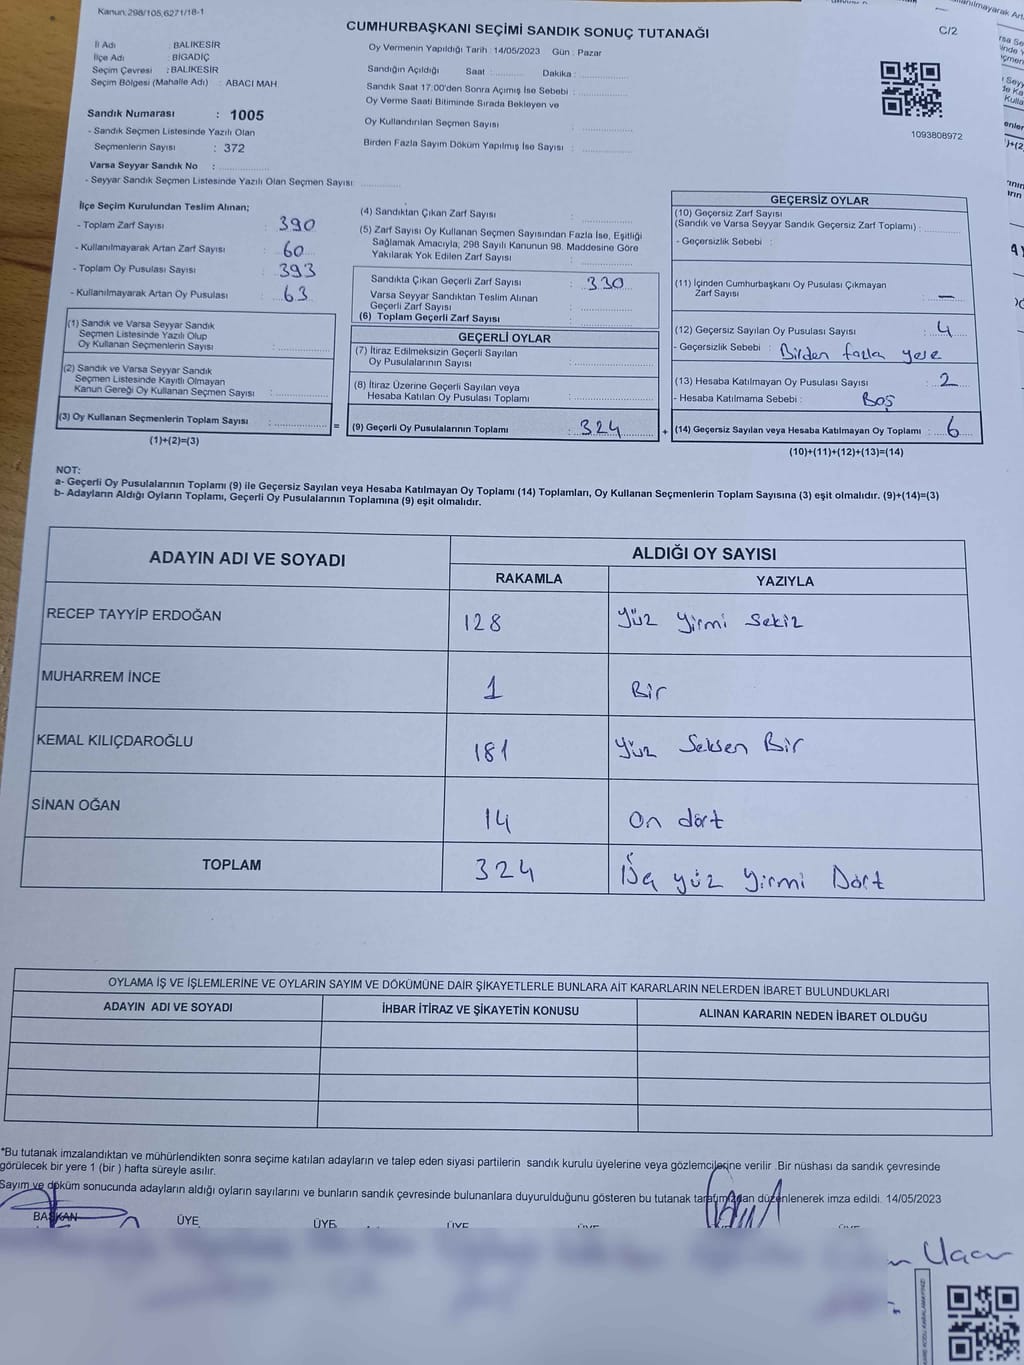 Kanun.298/105,6271/18-1
C/2
CUMHURBAŞKANI SEÇİMİ SANDIK SONUÇ TUTANAĞI
İl Adı : BALIKESİR
İlçe Adı : BİGADİÇ
Seçim Çevresi : BALIKESİR
Seçim Bölgesi (Mahalle Adı) : ABACI MAH.
Sandık Numarası : 1005
- Sandık Seçmen Listesinde Yazılı Olan
Seçmenlerin Sayısı : 372
Varsa Seyyar Sandık No : ..............
- Seyyar Sandık Seçmen Listesinde Yazılı Olan Seçmen Sayısı ..............
Oy Vermenin Yapıldığı Tarih : 14/05/2023 Gün : Pazar
Sandığın Açıldığı Saat : .......... Dakika : ..............
Sandık Saat 17:00'den Sonra Açımış İse Sebebi : ..............
Oy Verme Saati Bitiminde Sırada Bekleyen ve
Oy Kullandırılan Seçmen Sayısı : ..............
Birden Fazla Sayım Döküm Yapılmış İse Sayısı : ..............
1093808972
İlçe Seçim Kurulundan Teslim Alınan;
- Toplam Zarf Sayısı : 390
- Kullanılmayarak Artan Zarf Sayısı : 60
- Toplam Oy Pusulası Sayısı : 393
- Kullanılmayarak Artan Oy Pusulası : 63
(1) Sandık ve Varsa Seyyar Sandık
Seçmen Listesinde Yazılı Olup
Oy Kullanan Seçmenlerin Sayısı : ..............
(2) Sandık ve Varsa Seyyar Sandık
Seçmen Listesinde Kayıtlı Olmayan
Kanun Gereği Oy Kullanan Seçmen Sayısı : ..............
(3) Oy Kullanan Seçmenlerin Toplam Sayısı : ..............
(1)+(2)=(3)
(4) Sandıktan Çıkan Zarf Sayısı : ..............
(5) Zarf Sayısı Oy Kullanan Seçmen Sayısından Fazla İse, Eşitliği
Sağlamak Amacıyla, 298 Sayılı Kanunun 98. Maddesine Göre
Yakılarak Yok Edilen Zarf Sayısı : ..............
Sandıkta Çıkan Geçerli Zarf Sayısı : 330
Varsa Seyyar Sandıktan Teslim Alınan
Geçerli Zarf Sayısı : ..............
(6) Toplam Geçerli Zarf Sayısı : ..............
GEÇERLİ OYLAR
(7) İtiraz Edilmeksizin Geçerli Sayılan
Oy Pusulalarının Sayısı : ..............
(8) İtiraz Üzerine Geçerli Sayılan veya
Hesaba Katılan Oy Pusulası Toplamı : ..............
= (9) Geçerli Oy Pusulalarının Toplamı : 324
GEÇERSİZ OYLAR
(10) Geçersiz Zarf Sayısı
(Sandık ve Varsa Seyyar Sandık Geçersiz Zarf Toplamı) : ..............
- Geçersizlik Sebebi :
(11) İçinden Cumhurbaşkanı Oy Pusulası Çıkmayan
Zarf Sayısı : —
(12) Geçersiz Sayılan Oy Pusulası Sayısı : 4
- Geçersizlik Sebebi : Birden fazla yere
(13) Hesaba Katılmayan Oy Pusulası Sayısı : 2
- Hesaba Katılmama Sebebi : Boş
+ (14) Geçersiz Sayılan veya Hesaba Katılmayan Oy Toplamı : 6
(10)+(11)+(12)+(13)=(14)
NOT:
a- Geçerli Oy Pusulalarının Toplamı (9) ile Geçersiz Sayılan veya Hesaba Katılmayan Oy Toplamı (14) Toplamları, Oy Kullanan Seçmenlerin Toplam Sayısına (3) eşit olmalıdır. (9)+(14)=(3)
b- Adayların Aldığı Oyların Toplamı, Geçerli Oy Pusulalarının Toplamına (9) eşit olmalıdır.
ADAYIN ADI VE SOYADI ALDIĞI OY SAYISI
RAKAMLA YAZIYLA
RECEP TAYYİP ERDOĞAN 128 Yüz yirmi Sekiz
MUHARREM İNCE 1 Bir
KEMAL KILIÇDAROĞLU 181 Yüz Seksen Bir
SİNAN OĞAN 14 On dört
TOPLAM 324 Üç yüz yirmi Dört
OYLAMA İŞ VE İŞLEMLERİNE VE OYLARIN SAYIM VE DÖKÜMÜNE DAİR ŞİKAYETLERLE BUNLARA AİT KARARLARIN NELERDEN İBARET BULUNDUKLARI
ADAYIN ADI VE SOYADI İHBAR İTİRAZ VE ŞİKAYETİN KONUSU ALINAN KARARIN NEDEN İBARET OLDUĞU
*Bu tutanak imzalandıktan ve mühürlendikten sonra seçime katılan adayların ve talep eden siyasi partilerin sandık kurulu üyelerine veya gözlemcilerine verilir .Bir nüshası da sandık çevresinde
görülecek bir yere 1 (bir ) hafta süreyle asılır.
Sayım ve döküm sonucunda adayların aldığı oyların sayılarını ve bunların sandık çevresinde bulunanlara duyurulduğunu gösteren bu tutanak tarafımızdan düzenlenerek imza edildi. 14/05/2023
BAŞKAN ÜYE ÜYE ÜYE